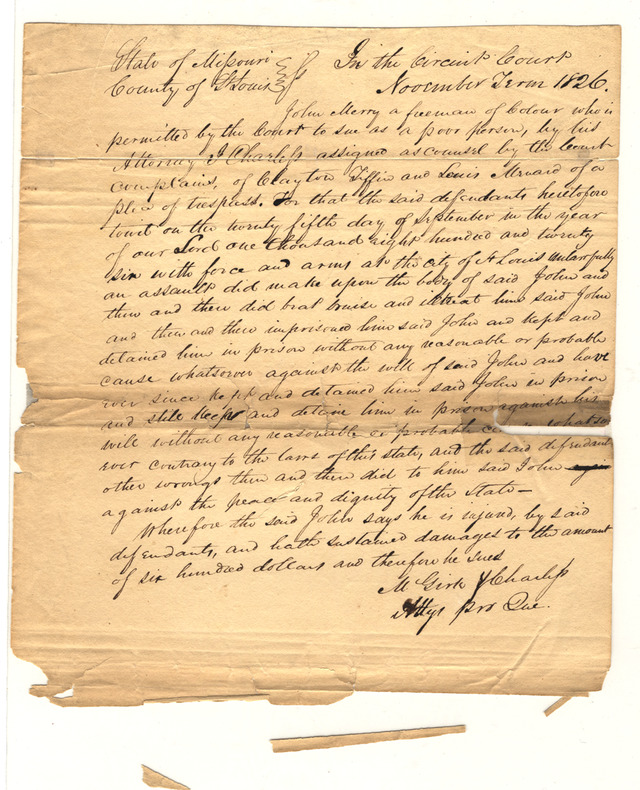 State of Missouri } ss In the Circuit Court
County of St Louis } November Term 1826.
John Merry a freeman of Colour who is
permitted by the Court to sue as a poor person, by his
Attorney J Charless assigned as counsel by the Court
complains, of Clayton Tiffin and Louis Menard of a
plea of trespass. For that the said defendants heretofore
towit on the twenty fifth day of September in the year
of our Lord one thousand eight hundred and twenty
six with force and arms at the city of St Louis unlawfully
an assault did make upon the body of said John and
then and there did beat bruise and illtreat him said John
and then and there imprisoned him said John and kept and
detained him in prison without any reasonable or probable
cause whatsoever against the will of said John and have
ever since kept and detained him said John in prison
and still keeps and detain him in prison against his
will without any reasonable or probable whatso
ever contrary to the laws of this state, and the said defendant
other wrongs then and there did to him said John
against the peace and dignity of the State—
Wherefore the said John says he is injured, by said
defendants, and hath sustained damages to the amount
of six hundred dollars and therefore he sues
McGirk & Charless
Attys pro Que.